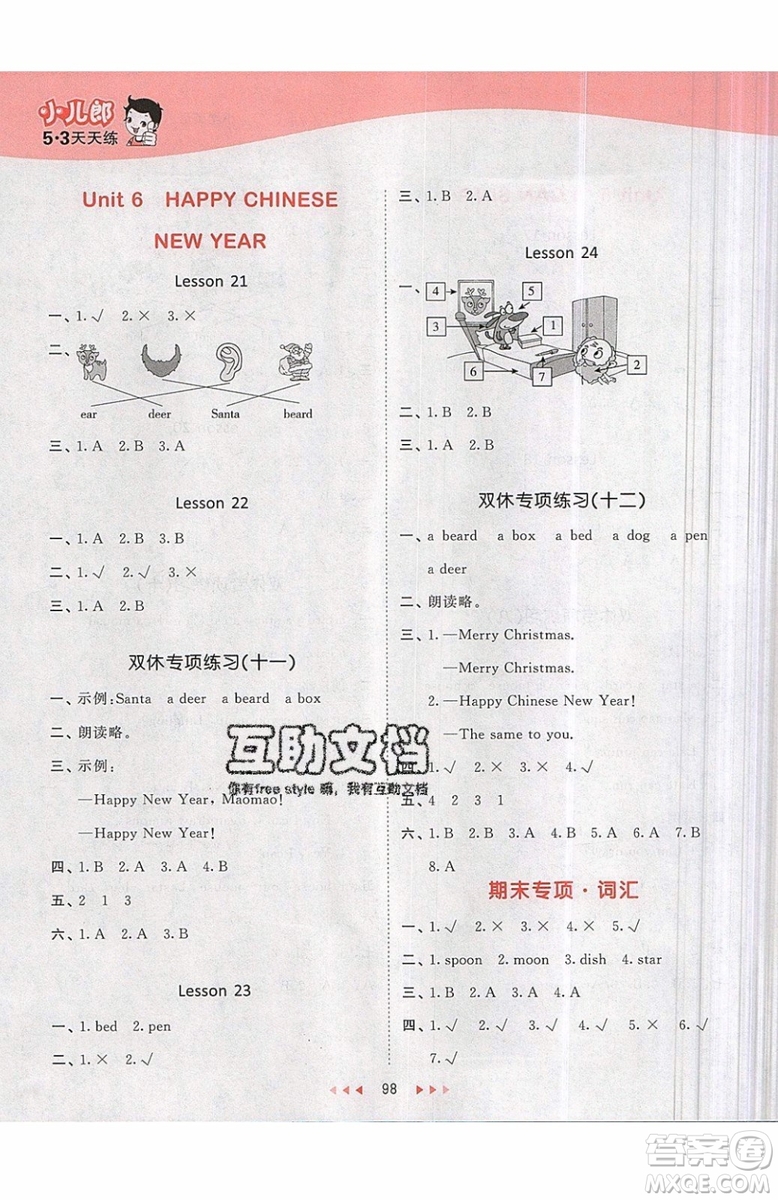 小儿郎
5·3天天练
Unit 6 HAPPY CHINESE
NEW YEAR
Lesson 21
一、1.√ 2.× 3.×
二、
ear deer Santa beard
三、1.A 2.B 3.A
Lesson 22
一、1.A 2.B 3.B
二、1.√ 2.√ 3.×
三、1.B 2.A
双休专项练习(十一)
一、示例:Santa a deer a beard a box
二、朗读略。
三、示例:
—Happy New Year, Maomao!
—Happy New Year!
四、1.B 2.A 3.A 4.B
五、2 1 3
六、1.B 2.A 3.B
Lesson 23
一、1.bed 2.pen
二、1.× 2.√
三、1.B 2.A
Lesson 24
一、
4
5
3
1
6
7
2
二、1.B 2.A
三、1.A 2.B
双休专项练习(十二)
一、a beard a box a bed a dog a pen
a deer
二、朗读略。
三、1.—Merry Christmas.
—Merry Christmas.
2.—Happy Chinese New Year!
—The same to you.
四、1.√ 2.√ 3.× 4.√
五、4 2 3 1
六、1.B 2.B 3.A 4.B 5.A 6.A 7.B
8.A
期末专项·词汇
一、1.√ 2.× 3.× 4.× 5.√
二、1.spoon 2.moon 3.dish 4.star
三、1.A 2.B 3.A 4.B 5.A
四、1.√ 2.√ 3.× 4.√ 5.× 6.√
7.√
98
互助文档
你有free style 嘛，我有互助文档
答案圈
MXQE.COM